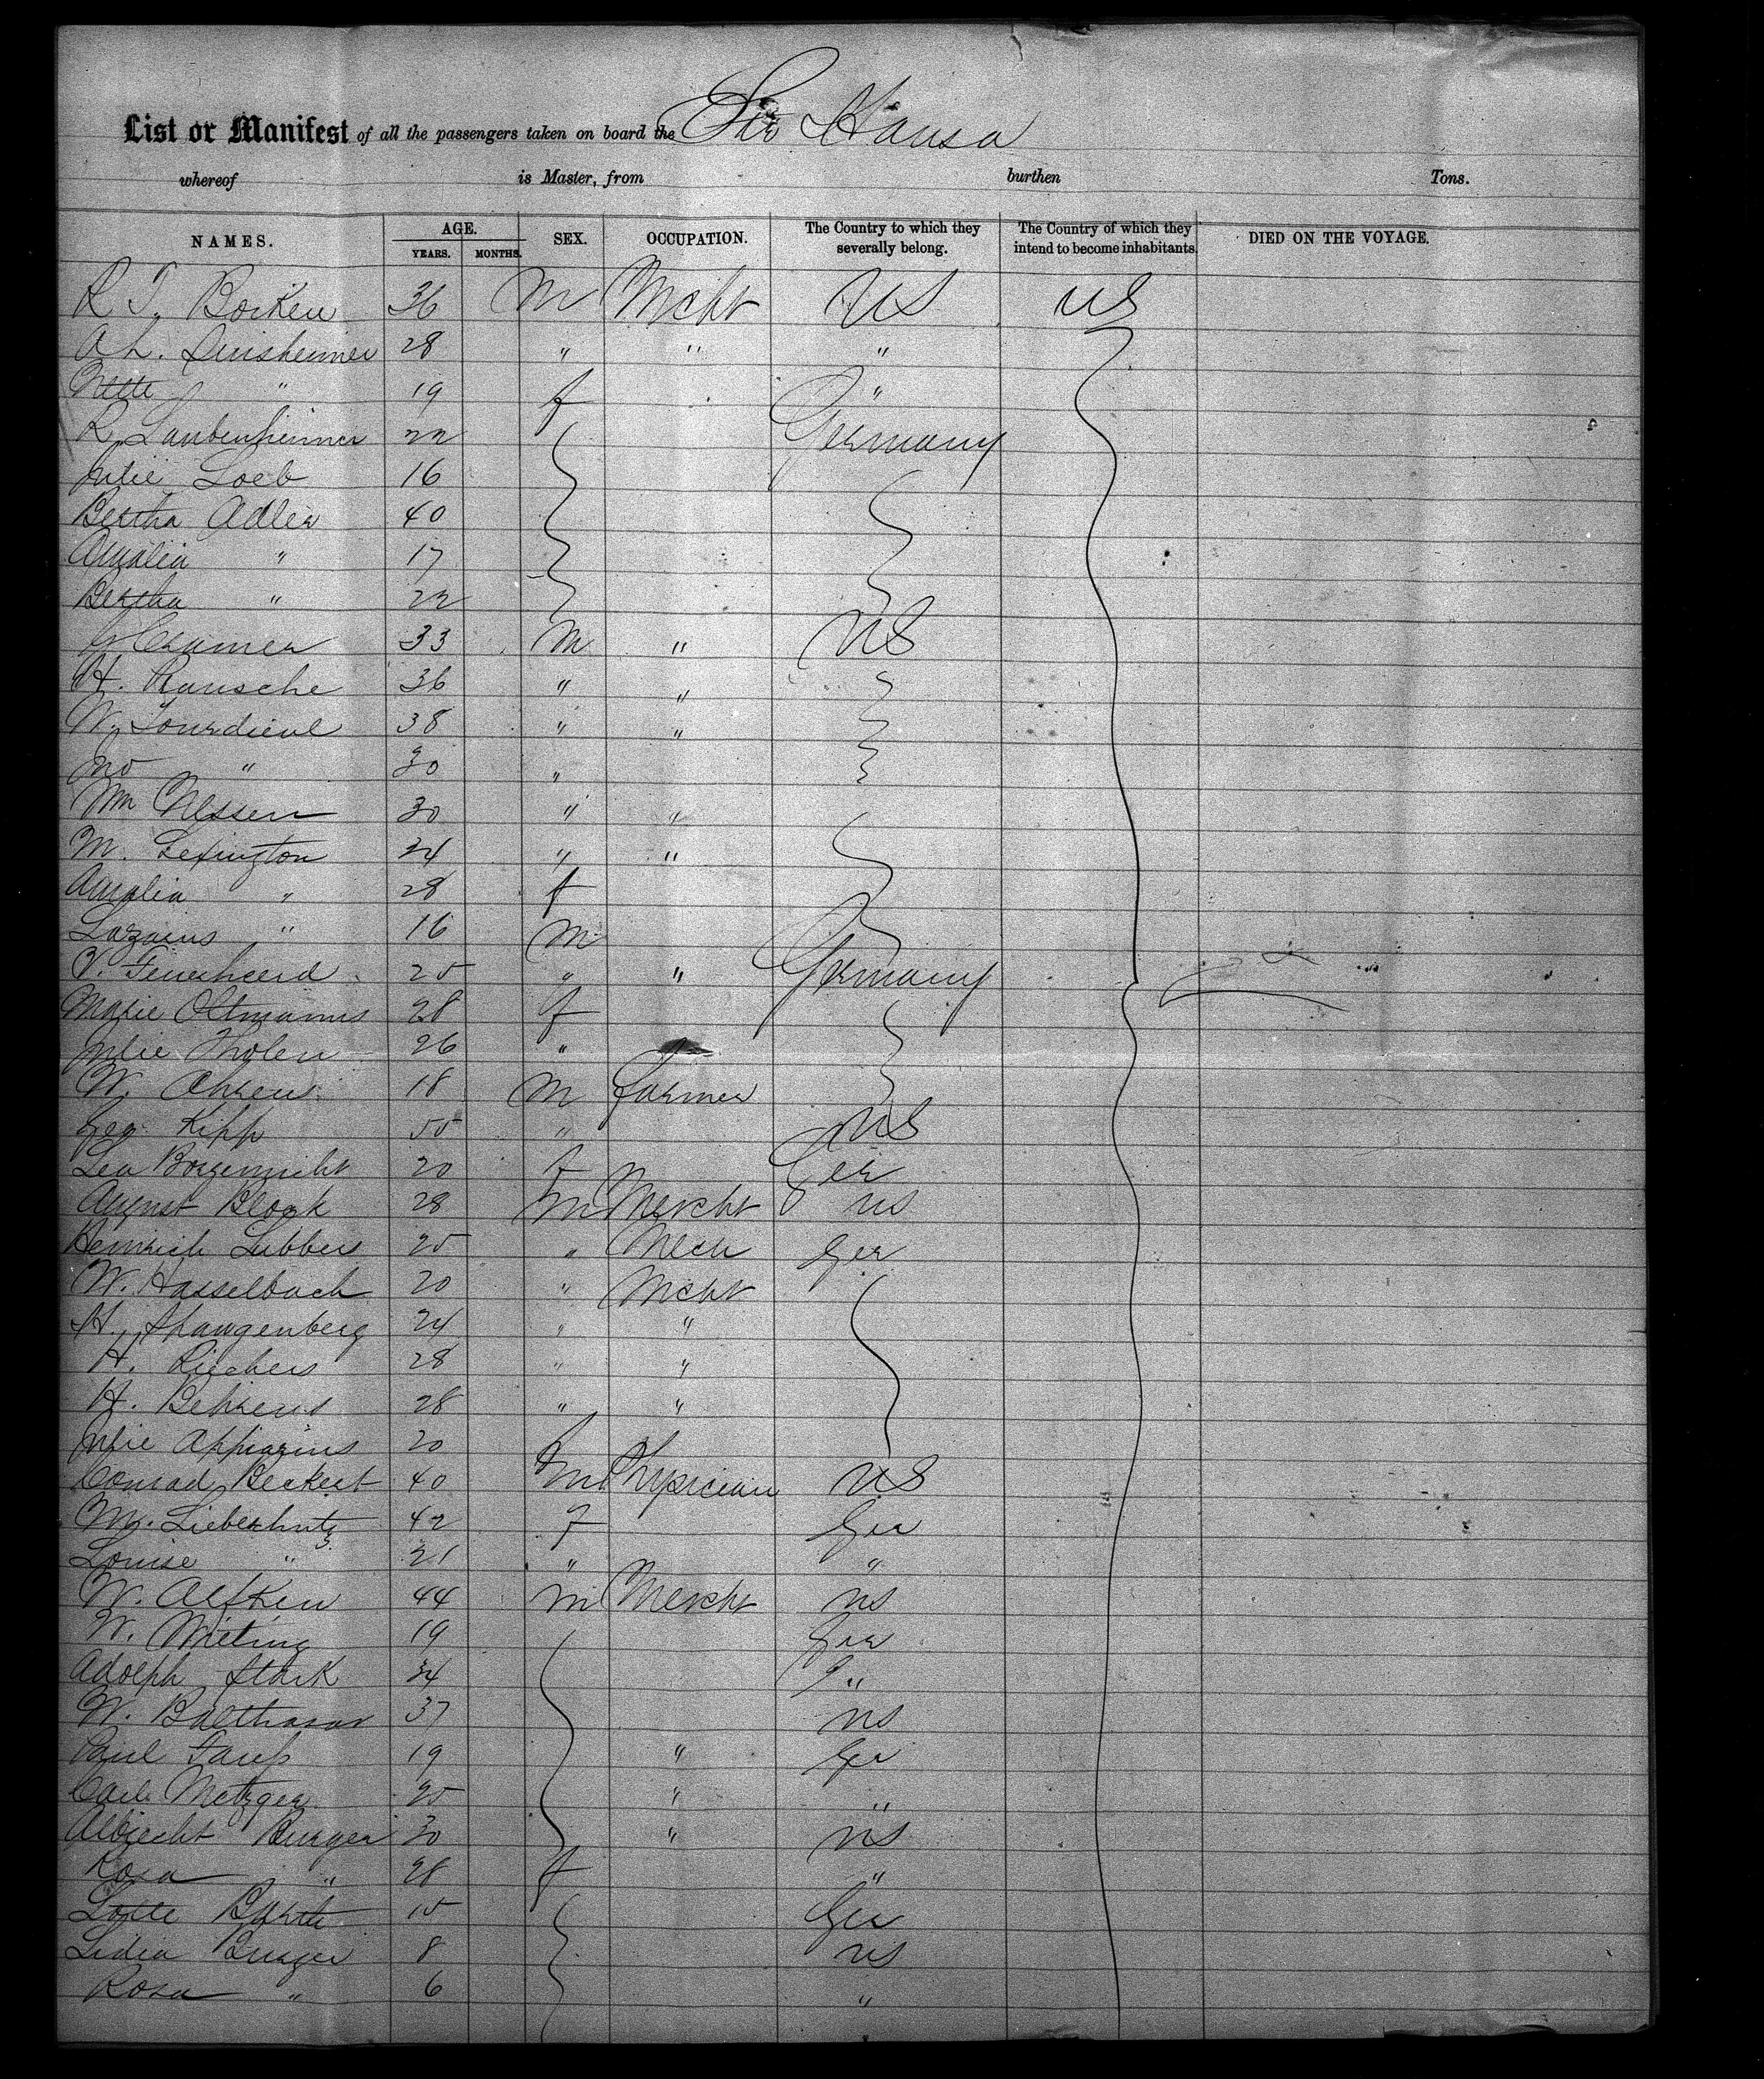 List or Manifest of all the passengers taken on board the Str Hansa
whereof is Master, from burthen Tons.
NAMES. AGE. YEARS. MONTHS. SEX. OCCUPATION. The Country to which they severally belong. The Country of which they intend to become inhabitants. DIED ON THE VOYAGE.
R T. Borken 36 M Mcht US US
A L. Sinsheimer 28 " " "
Nette " 19 f "
R. Laubenheimer 22 Germany
Julie Loeb 16
Bertha Adler 40
Amalia " 17
Bertha " 22
G Cramer 33 M " US
H. Rausche 36 " "
W. 38 " "
" 30 "
Wm Nessen 30 " "
M. Lexington 34 " "
Amalia " 28 f
Lazarus " 16 M
V. Feuerheerd 25 " " Germany
Marie Oltmanns 28 f
Julie Tholen 26 "
W. Ahrens 18 M Farmer
Geo. Kipp 55 " US
Lea Borgenicht 20 f Ger
August Block 28 M Mercht US
Heinrich Lubbers 25 " Mech Ger
W. Hasselbach 20 " Mcht
H. Spangenberg 24 " "
H. Riechers 28 " "
H. Behrens 28 " "
Julie Appiarius 20 f
Conrad Beckert 40 M Physician US
M. 42 f Ger
Louise " 21 " "
W. Alfken 44 M Mercht US
W. Wieting 19 Ger
Adolph Stark 34 "
W. Balthasar 37 US
Paul 19 " Ger
Carl Metzger 25 " "
Albrecht Burger 30 " US
Rosa " 28 f "
Lotte Barth 15 Ger
Lidia Burger 8 US
Rosa " 6 "